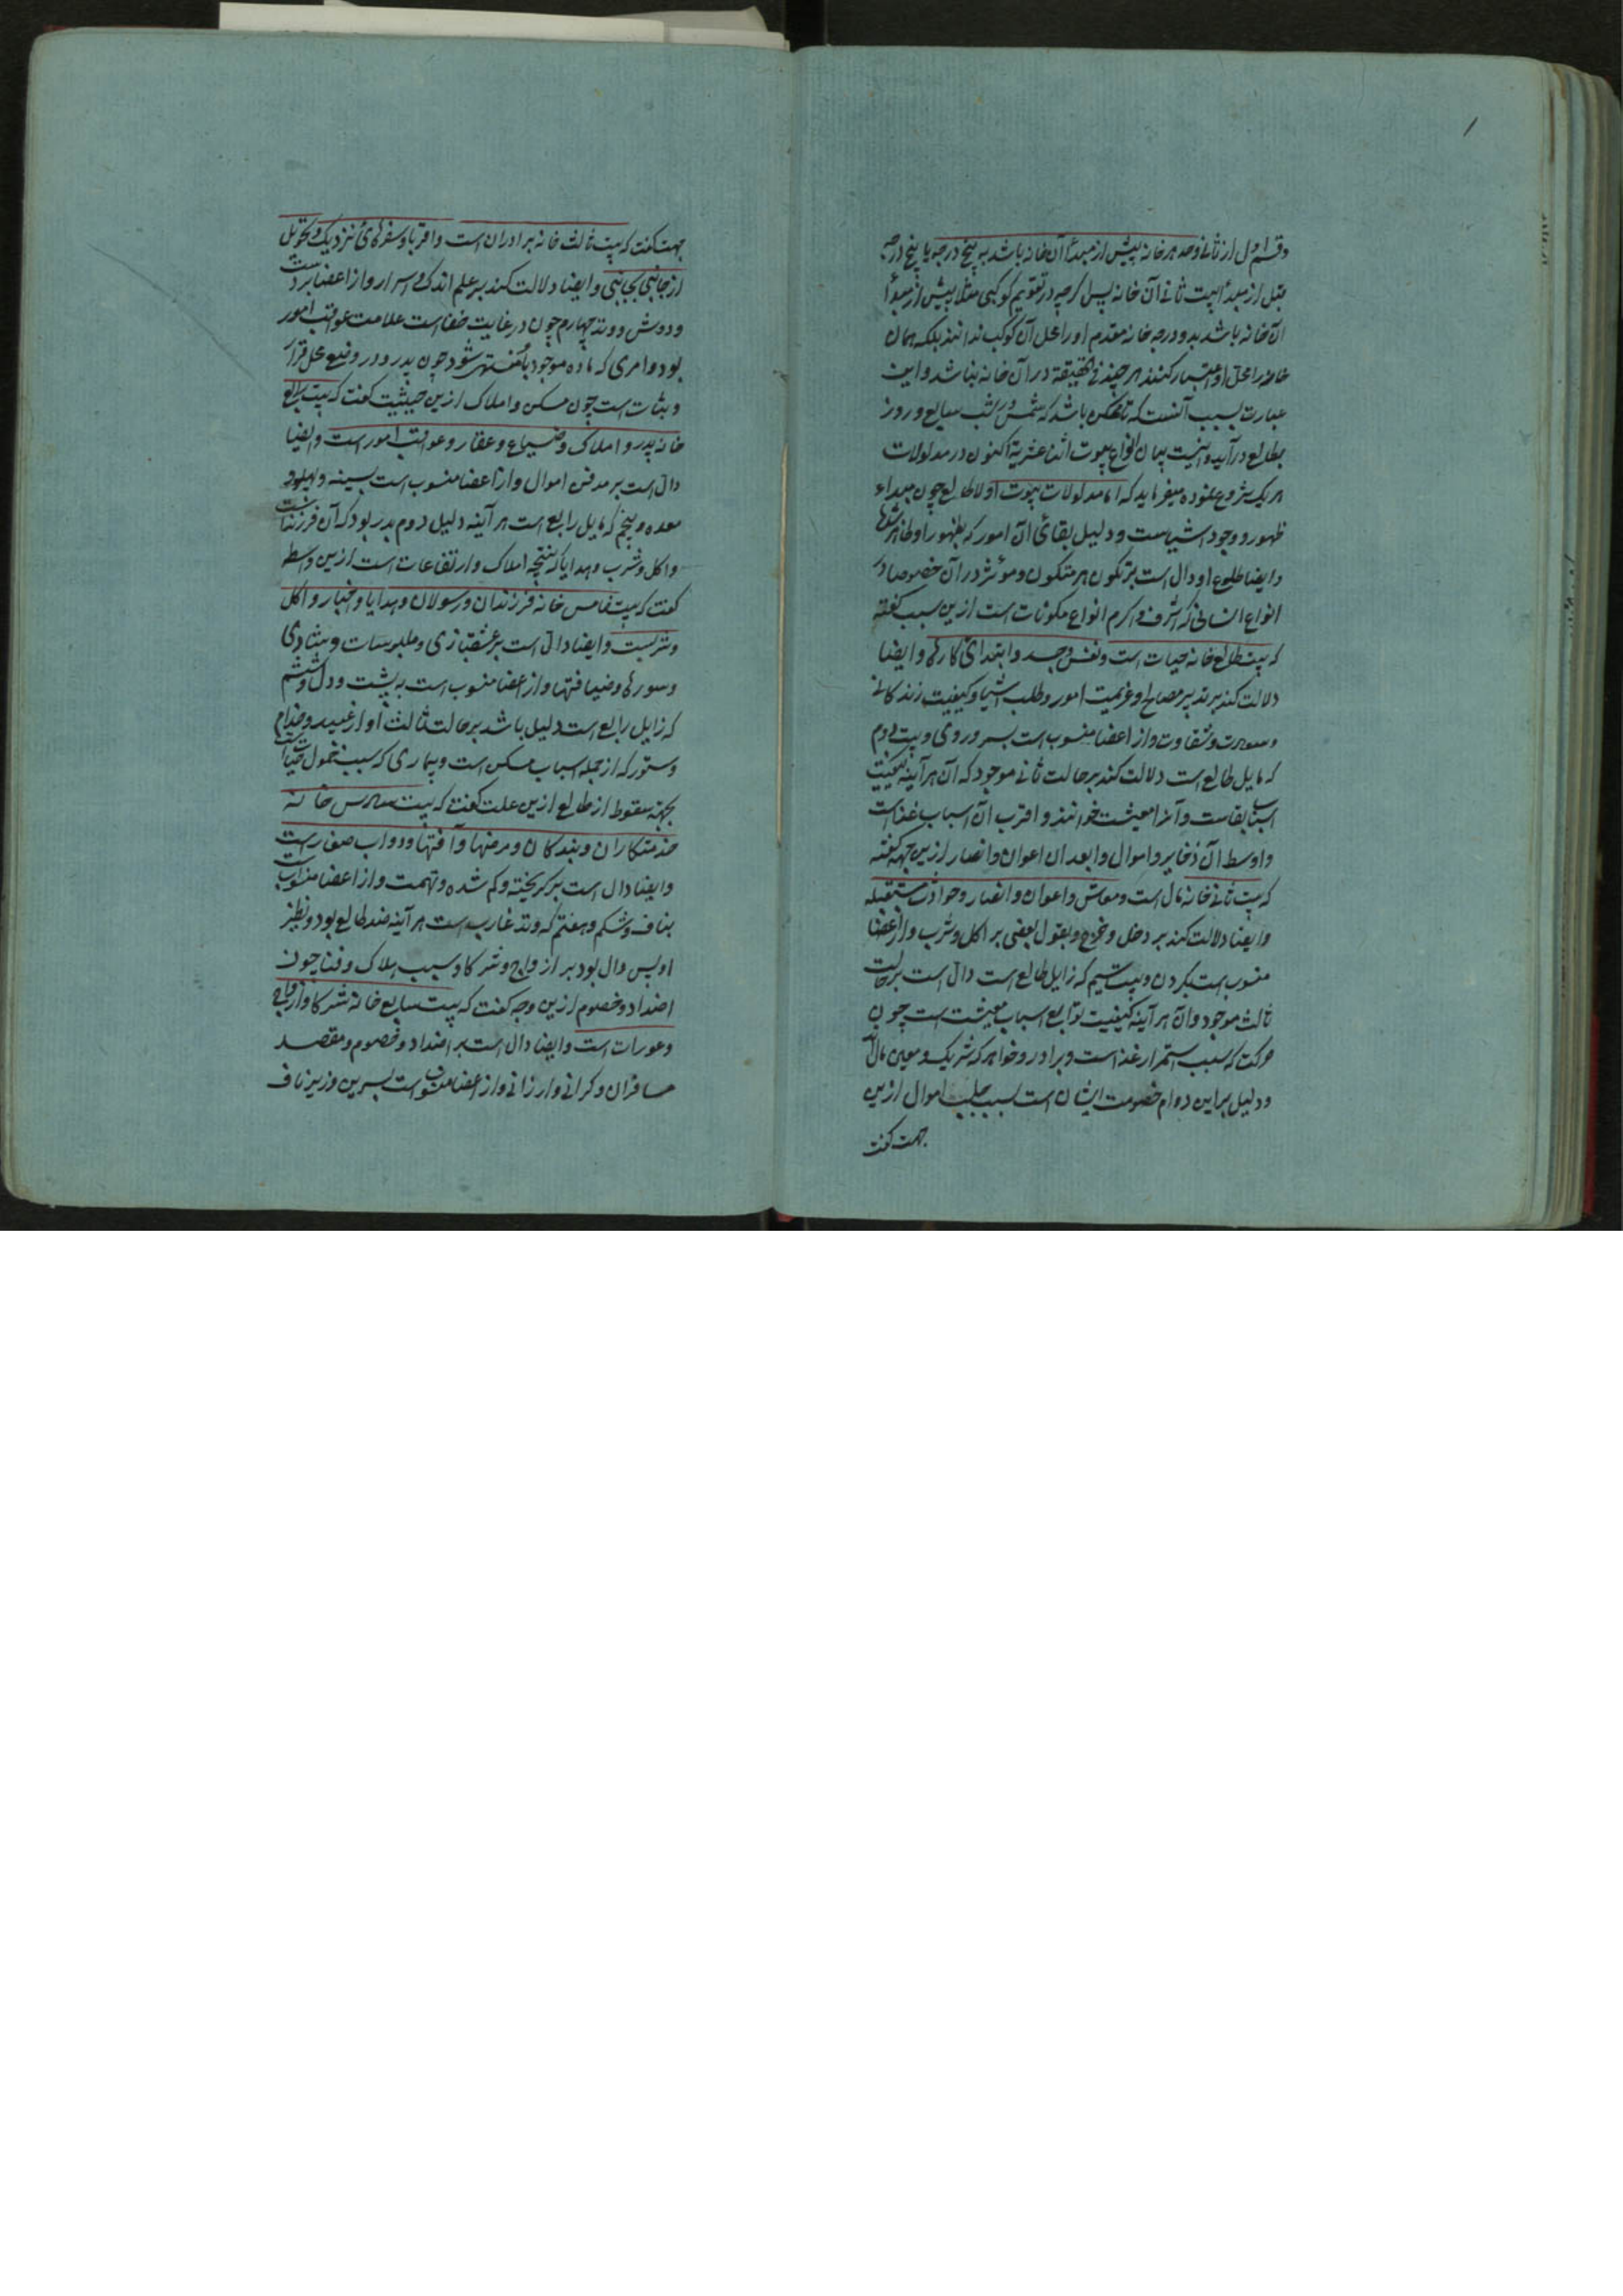 وقسم اول از ثانی وحد هر خانه پیش از مبدأ آن خانه باشد به پنج درجه یا پنج درجه
قبل از مبدأ بیت ثانی آن خانه پس کرچه در تقویم کوکبی مثلا پیش از مبدأ
آن خانه باشد بدو درجه خانه مقدم او را محل آن کوکب ندانند بلکه همان
خانه را محل او اعتبار کنند هر چند فی الحقیقة در آن خانه نباشد و این
عبارت بسبب آنست که تا ممکن باشد که شمس در شب سابع و روز
بطالع درآید و اینست بیان انواع بیوت اثنا عشریة اکنون در مدلولات
هر یک شروع نموده میفرماید که اما مدلولات بیوت اولا طالع چون مبداء
ظهور و وجود اشیاست و دلیل بقای آن امور که بظهور او ظاهر شد
و ایضا طلوع او دال است بر تکون هر متکون و مؤثر در آن خصوصا در
انواع انسانی که اشرف و اکرم انواع مکونات است ازین سبب گفته
که بیت طالع خانه حیات است و نفس و جسد و ابتدای کارها و ایضا
دلالت کند بر تدبیر مصالح و عزیمت امور و طلب اشیا و کیفیت زندکانی
و سعادت و شقاوت و از اعضا منسوب است بسر و روی و بیت دوم
که مایل طالع است دلالت کند بر حالت ثانی موجود که آن هر آینه کیفیت
اسباب بقاست و آنرا معیشت خوانند و اقرب آن اسباب غذاست
و اوسط آن ذخایر و اموال و ابعد ان اعوان و انصار ازین جهه گفته
که بیت ثانی خانه مال است و معاش و اعوان و انصار و حوادث مستقبله
و ایضا دلالت کند بر دخل و خرج و بقول بعضی بر اکل و شرب و از اعضا
منسوب است بکردن و بیت سیم که زایل طالع است دال است بر حالت
ثالث موجود و آن هر آینه کیفیت توابع اسباب معیشت است چون
حرکت که سبب استمرار غذا است و برادر و خواهر که شریک و معین مال اند
و دلیل بر این دوام خصومت ایشان است بسبب جلب اموال ازین
جهت گفت
جهت گفت که بیت ثالث خانه برادران است و اقربا و سفرهای نزدیک و تحویل
از جانبی بجانبی و ایضا دلالت کند بر علم اندک و اسرار و از اعضا بر دست
و دوش و وتد چهارم چون در غایت خفا است علامت عواقب امور
بود و امری که ماده موجود بآن منتهی شود چون پدر و در وضع محل قرار
و ثبات است چون مسکن و املاک ازین حیثیت گفت که بیت رابع
خانه پدر و املاک و ضیاع و عقار و عواقب امور است و ایضا
دال است بر مدفن اموال و از اعضا منسوب است بسینه و پهلو و
معده و پنجم که مایل رابع است هر آینه دلیل دوم پدر بود که آن فرزند است
و اکل و شرب و هدایا که نتیجه املاک و ارتفاعات است ازین واسطه
گفت که بیت خامس خانه فرزندان و رسولان و هدایا و اخبار و اکل
و شربست و ایضا دال است بر عشقبازی و ملبوسات و شادی
و سورها و ضیافتها و از اعضا منسوب است به پشت و دل و ششم
که زایل رابع است دلیل باشد بر حالت ثالث او از عبید و خدام
و ستور که از جمله اسباب مسکن است و بیماری که سبب خمول حیات است
بجهة سقوط از طالع ازین علت گفت که بیت سادس خانه
خدمتکاران و بندکان و مرضها و آفتها و دواب صغار است
و ایضا دال است بر کریخته و کم شده و تهمت و از اعضا منسوب است
بناف و شکم و هفتم که وتد غارب است هر آینه ضد طالع بود و نظیر
او پس دال بود بر ازواج و شرکا و سبب هلاک و فنا چون
اضداد و خصوم ازین وجه گفت که بیت سابع خانه شرکا و ازواج
و عورات است و ایضا دال است بر اضداد و خصوم و مقصد
مسافران و کرانی و ارزانی و از اعضا منسوب است بسرین و زیر ناف